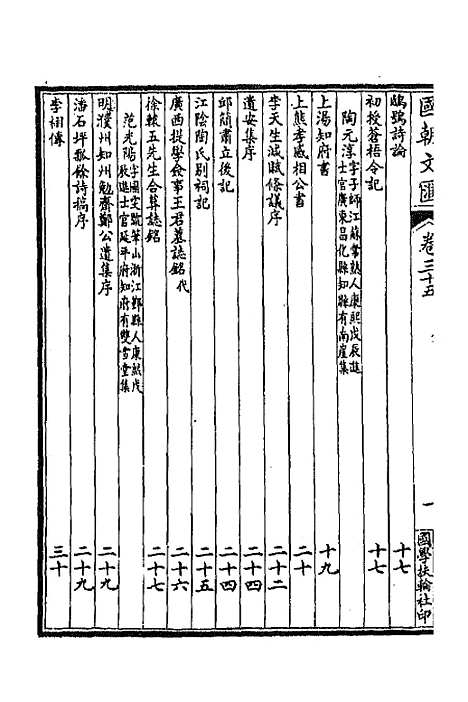 國朝文匯 卷三十五 一 國學扶輪社印
鴟鴞詩論 十七
初授蒼梧令記 十七
陶元淳 字子師江蘇常熟人康熙戊辰進
士官廣東昌化縣知縣有南崖集
上湯知府書 十九
上熊孝感相公書 二十
李天生減賦條議序 二十二
遺安集序 二十四
邱簡肅立後記 二十四
江陰陶氏別祠記 二十五
廣西提學僉事王君墓誌銘代 二十六
徐轅五先生合葬誌銘 二十七
范光陽 字國雯號筆山浙江鄞縣人康熙戊
辰進士官延平府知府有雙雲堂集
明濮州知州勉齋鄭公遺集序 二十九
潘石坪瓠餘詩槁序 二十九
李相傳 三十